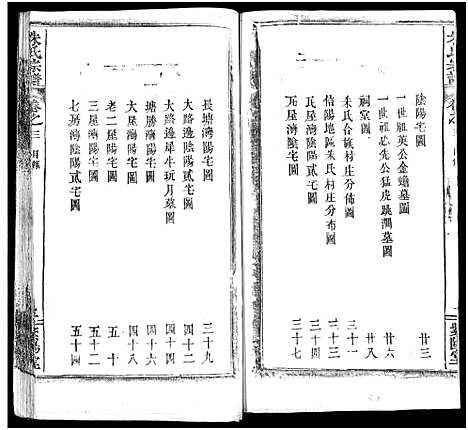 陰陽宅圖
一世祖英公金蟾墓圖 廿三
一世祖忠先公猛虎跳澗墓圖 廿六
祠堂圖 廿八
朱氏合族村庄分佈圖 三十一
信陽地區朱氏村庄分布圖 三十三
瓦屋灣陰陽貳宅圖 三十五
瓦屋灣陰陽貳宅圖 三十七
朱氏宗譜
卷之三
目錄
長塘灣陽宅圖 三十九
大路邊陰陽貳宅圖 四十二
大路邊犀牛玩月墓圖 四十四
塘勝灣陽宅圖 四十六
大屋灣陰陽貳宅圖 四十八
老二屋陽宅圖 五十
三屋灣陽宅圖 五十二
七房灣陰陽貳宅圖 五十四